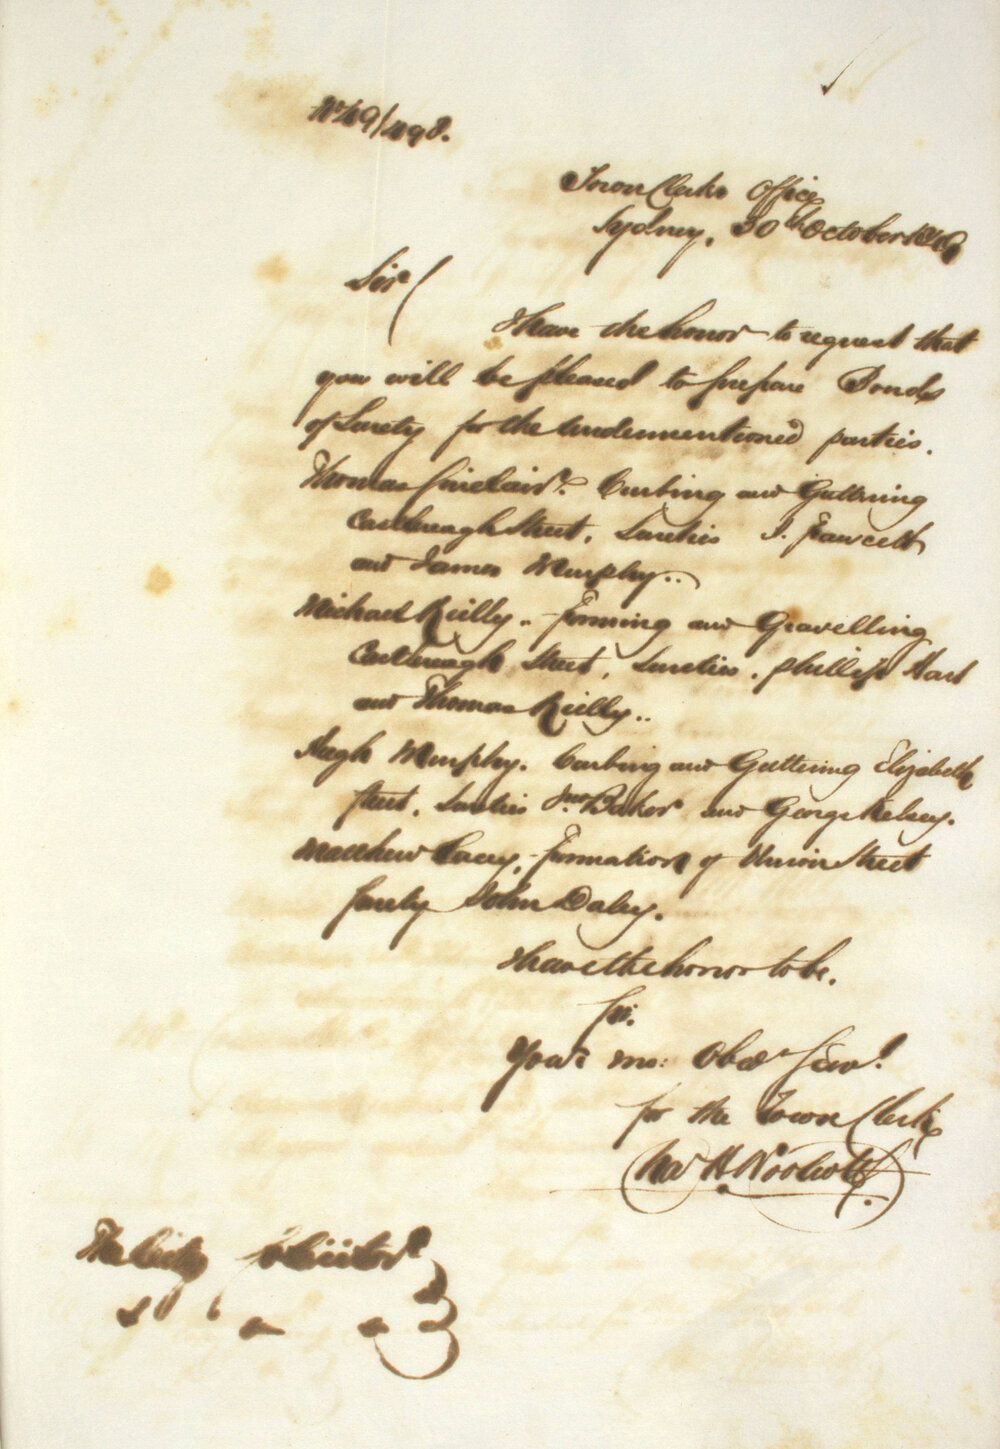 No 49/498.
Town Clerks Office
Sydney, 30th October 1849
Sir,
I have the honor to request that
you will be pleased to prepare Bonds
of Surety for the undermentioned parties.
Thomas Sinclair. Curbing and Guttering
Castlereagh Street, Sureties J. Fawcett
and James Murphy..
Michael Reilly.. Forming and Gravelling
Castlereagh Street, Sureties, Phillip Hart
and Thomas Reilly..
Hugh Murphy. Curbing and Guttering Elizabeth
Street, Sureties Jno Baker and George Kelsey.
Matthew Lacey, formation of Union Street
Surety John Daley.
I have the honor to be,
Sir.
Your mo: Obdt Serv.t
for the Town Clerk
H. Woolcott
The City Solicitor